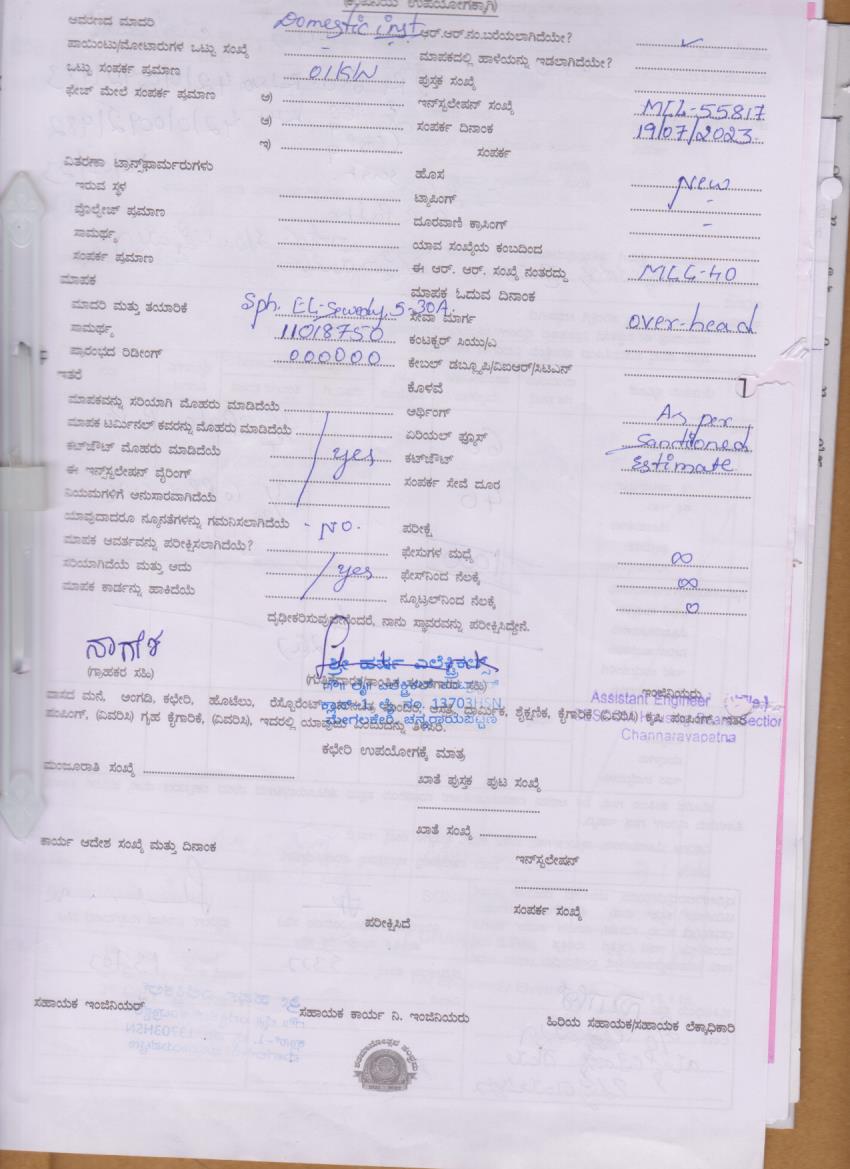 (ಕಛೇರಿಯ ಉಪಯೋಗಕ್ಕಾಗಿ)
ಆವರಣದ ಮಾದರಿ Domestic inst ಆರ್.ಆರ್.ನಂ.ಬರೆಯಲಾಗಿದೆಯೇ? ✓
ಪಾಯಿಂಟು/ಮೋಟಾರುಗಳ ಒಟ್ಟು ಸಂಖ್ಯೆ - ಮಾಪಕದಲ್ಲಿ ಹಾಳೆಯನ್ನು ಇಡಲಾಗಿದೆಯೇ?
ಒಟ್ಟು ಸಂಪರ್ಕ ಪ್ರಮಾಣ 01KW ಪುಸ್ತಕ ಸಂಖ್ಯೆ
ಫೇಜ್ ಮೇಲೆ ಸಂಪರ್ಕ ಪ್ರಮಾಣ ಅ) ಇನ್‌ಸ್ಟಲೇಷನ್ ಸಂಖ್ಯೆ MLL-55817
ಆ) ಸಂಪರ್ಕ ದಿನಾಂಕ 19/07/2023
ಇ) ಸಂಪರ್ಕ
ವಿತರಣಾ ಟ್ರಾನ್ಸ್‌ಫಾರ್ಮರುಗಳು ಹೊಸ New
ಇರುವ ಸ್ಥಳ ಟ್ಯಾಪಿಂಗ್ -
ವೊಲ್ಟೇಜ್ ಪ್ರಮಾಣ ದೂರವಾಣಿ ಕ್ರಾಸಿಂಗ್ -
ಸಾಮರ್ಥ್ಯ ಯಾವ ಸಂಖ್ಯೆಯ ಕಂಬದಿಂದ
ಸಂಪರ್ಕ ಪ್ರಮಾಣ ಈ ಆರ್. ಆರ್. ಸಂಖ್ಯೆ ನಂತರದ್ದು MLL-40
ಮಾಪಕ ಮಾಪಕ ಓದುವ ದಿನಾಂಕ
ಮಾದರಿ ಮತ್ತು ತಯಾರಿಕೆ Sph. EL-Sewedy, 5-30A. ಸೇವಾ ಮಾರ್ಗ over-head
ಸಾಮರ್ಥ್ಯ 11018750 ಕಂಟಕ್ಟರ್ ಸಿಯು/ಎ
ಪ್ರಾರಂಭದ ರಿಡೀಂಗ್ 000000 ಕೇಬಲ್ ಡಬ್ಲ್ಯೂಪಿ/ವಿಐಆರ್/ಸಿಟಿಎಸ್
ಇತರೆ ಕೊಳವೆ
ಮಾಪಕವನ್ನು ಸರಿಯಾಗಿ ಮೊಹರು ಮಾಡಿದೆಯೆ ಆರ್ಥಿಂಗ್ As per
ಮಾಪಕ ಟರ್ಮಿನಲ್ ಕವರನ್ನು ಮೊಹರು ಮಾಡಿದೆಯೆ ಏರಿಯಲ್ ಫ್ಯೂಸ್ Sanctioned
ಕಟ್‌ಔಟ್ ಮೊಹರು ಮಾಡಿದೆಯೆ yes ಕಟ್‌ಔಟ್ Estimate
ಈ ಇನ್ಸ್‌ಸ್ಟಲೇಷನ್ ವೈರಿಂಗ್ ಸಂಪರ್ಕ ಸೇವೆ ದೂರ
ನಿಯಮಗಳಿಗೆ ಅನುಸಾರವಾಗಿದೆಯೆ
ಯಾವುದಾದರೂ ನ್ಯೂನತೆಗಳನ್ನು ಗಮನಿಸಲಾಗಿದೆಯೆ - NO. ಪರೀಕ್ಷೆ
ಮಾಪಕ ಆವರ್ತವನ್ನು ಪರೀಕ್ಷಿಸಲಾಗಿದೆಯೆ? ಫೇಸುಗಳ ಮಧ್ಯೆ ∞
ಸರಿಯಾಗಿದೆಯೆ ಮತ್ತು ಅದು yes ಫೇಸ್‌ನಿಂದ ನೆಲಕ್ಕೆ ∞
ಮಾಪಕ ಕಾರ್ಡನ್ನು ಹಾಕಿದೆಯೆ ನ್ಯೂಟ್ರಲ್‌ನಿಂದ ನೆಲಕ್ಕೆ 0
ದೃಢೀಕರಿಸುವುದೇನೆಂದರೆ, ನಾನು ಸ್ಥಾವರವನ್ನು ಪರೀಕ್ಷಿಸಿದ್ದೇನೆ.
ನಾಗೇಶ
(ಗ್ರಾಹಕರ ಸಹಿ)
ಶ್ರೀ ಹರ್ಷ ಎಲೆಕ್ಟ್ರಿಕಲ್ಸ್
ಕ್ಲಾಸ್-1, ಲೈ. ನಂ. 13703HSN
ಮೇಗಲಕೇರಿ, ಚನ್ನರಾಯಪಟ್ಟಣ
ಇಂಜಿನಿಯರು
Assistant Engineer
Section
Channarayapatna
ವಾಸದ ಮನೆ, ಅಂಗಡಿ, ಕಛೇರಿ, ಹೊಟೆಲು, ರೆಸ್ಟೊರೆಂಟ್ ಆಸ್ಪತ್ರೆ, ಧಾರ್ಮಿಕ, ಶೈಕ್ಷಣಿಕ, ಕೈಗಾರಿಕೆ (ವಿವರಿಸಿ) ಕೃಷಿ ಪಂಪಿಂಗ್, ಇತರೆ
ಪಂಪಿಂಗ್, (ವಿವರಿಸಿ) ಗೃಹ ಕೈಗಾರಿಕೆ, (ವಿವರಿಸಿ), ಇದರಲ್ಲಿ ಯಾವುದು ಎಂಬುದನ್ನು ತಿಳಿಸಿರಿ.
ಕಛೇರಿ ಉಪಯೋಗಕ್ಕೆ ಮಾತ್ರ
ಮಂಜೂರಾತಿ ಸಂಖ್ಯೆ ಖಾತೆ ಪುಸ್ತಕ ಪುಟ ಸಂಖ್ಯೆ
ಖಾತೆ ಸಂಖ್ಯೆ
ಕಾರ್ಯ ಆದೇಶ ಸಂಖ್ಯೆ ಮತ್ತು ದಿನಾಂಕ
ಇನ್‌ಸ್ಟಲೇಷನ್
ಸಂಪರ್ಕ ಸಂಖ್ಯೆ
ಪರೀಕ್ಷಿಸಿದೆ
ಸಹಾಯಕ ಇಂಜಿನಿಯರ್ ಸಹಾಯಕ ಕಾರ್ಯ ನಿ. ಇಂಜಿನಿಯರು ಹಿರಿಯ ಸಹಾಯಕ/ಸಹಾಯಕ ಲೆಕ್ಕಾಧಿಕಾರಿ